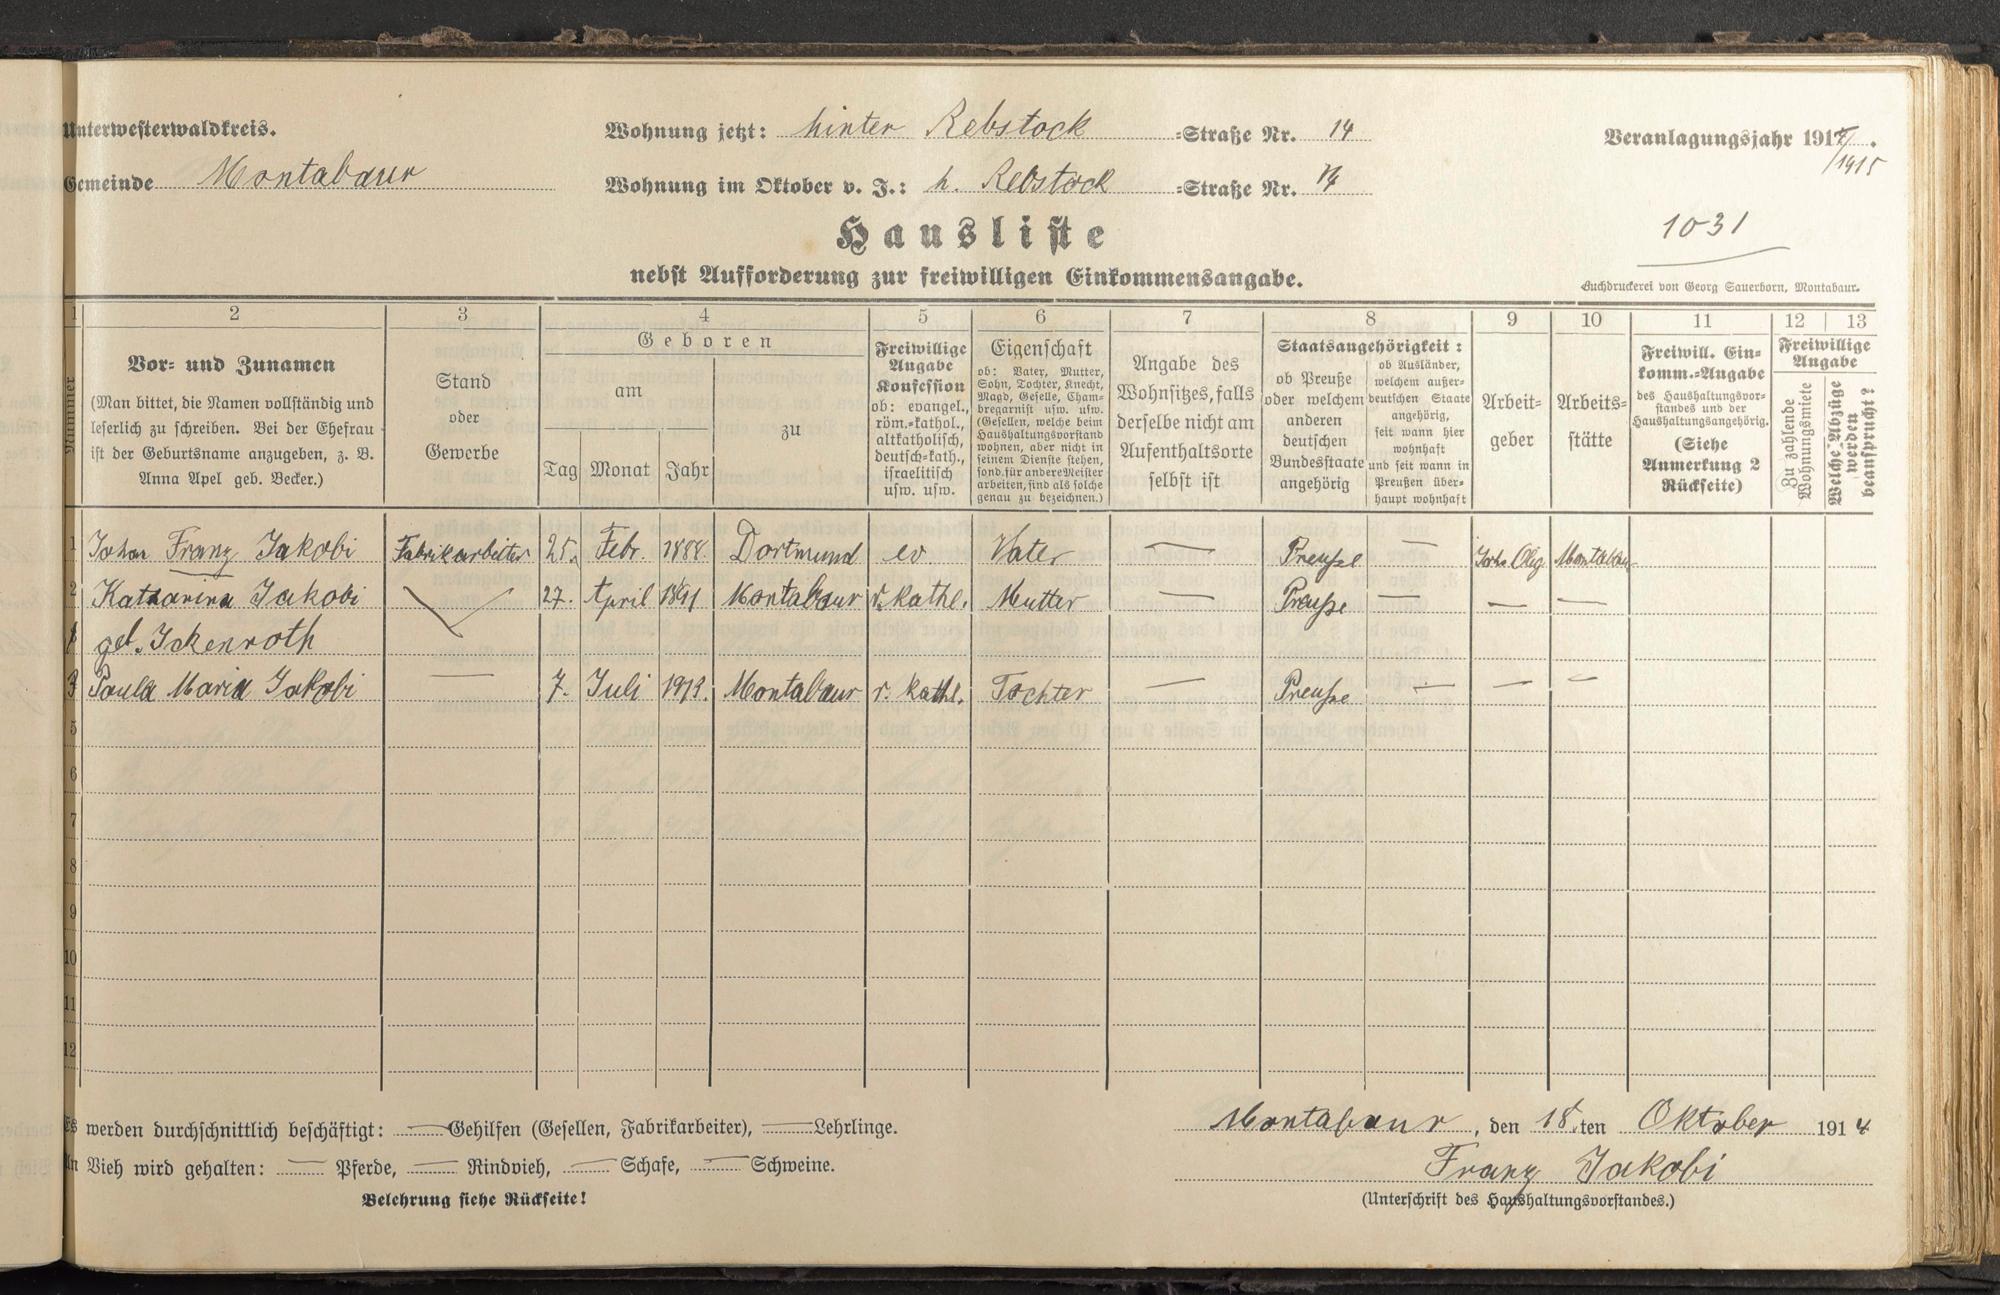 Unterwesterwaldkreis.
Gemeinde Montabaur
Wohnung jetzt: hinter Rebstock =Straße Nr. 14
Wohnung im Oktober v. J.: h. Rebstock =Straße Nr. 14
Veranlagungsjahr 1914/1915.
1031
Hausliste
nebst Aufforderung zur freiwilligen Einkommensangabe.
Buchdruckerei von Georg Sauerborn, Montabaur.
1 2 3 4 5 6 7 8 9 10 11 12 13
Nummer
Vor- und Zunamen
(Man bittet, die Namen vollständig und
leserlich zu schreiben. Bei der Ehefrau
ist der Geburtsname anzugeben, z. B.
Anna Apel geb. Becker.)
Stand
oder
Gewerbe
Geboren
am
Tag Monat Jahr
zu
Freiwillige
Angabe
Konfession
ob: evangel.,
röm.-kathol.,
altkatholisch,
deutsch-kath.,
israelitisch
usw. usw.
Eigenschaft
ob: Vater, Mutter,
Sohn, Tochter, Knecht,
Magd, Geselle, Cham-
bregarnist usw. usw.
(Gesellen, welche beim
Haushaltungsvorstand
wohnen, aber nicht in
seinem Dienste stehen,
sond. für andere Meister
arbeiten, sind als solche
genau zu bezeichnen.)
Angabe des
Wohnsitzes, falls
derselbe nicht am
Aufenthaltsorte
selbst ist
Staatsangehörigkeit:
ob Preuße
oder welchem
anderen
deutschen
Bundesstaate
angehörig
ob Ausländer,
welchem außer-
deutschen Staate
angehörig,
seit wann hier
wohnhaft
und seit wann in
Preußen über-
haupt wohnhaft
Arbeit-
geber
Arbeits-
stätte
Freiwill. Ein-
komm.-Angabe
des Haushaltungsvor-
standes und der
Haushaltungsangehörig.
(Siehe
Anmerkung 2
Rückseite)
Freiwillige
Angabe
Zu zahlende
Wohnungsmiete
Welche Abzüge
werden
beansprucht?
1 Johan Franz Jakobi Fabrikarbeiter 25. Febr. 1888. Dortmund ev. Vater — Preuße — Montabaur
2 Katharina Jakobi 27. April 1891 Montabaur r. kathl. Mutter — Preuße — — —
geb. Ickenroth
3 Paula Maria Jakobi — 7. Juli 1913. Montabaur r. kathl. Tochter — Preuße — — —
5
6
7
8
9
10
11
12
Es werden durchschnittlich beschäftigt: — Gehilfen (Gesellen, Fabrikarbeiter), — Lehrlinge.
An Vieh wird gehalten: — Pferde, — Rindvieh, — Schafe, — Schweine.
Belehrung siehe Rückseite!
Montabaur, den 18.ten Oktober 1914
Franz Jakobi
(Unterschrift des Haushaltungsvorstandes.)